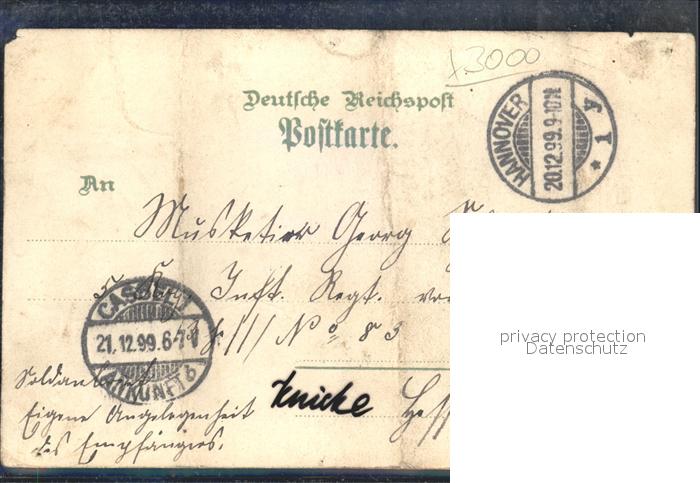 x3000
Deutsche Reichspost
Postkarte.
HANNOVER
20.12.99.9-10N.
* 1 y
An
Musketier Georg
Inft. Regt. von
/III No 83
CASSEL 1
21.12.99.6-7.V
ANKUNFT
Soldaten
Eigene Angelegenheit
des Empfängers.
Knicke
privacy protection
Datenschutz